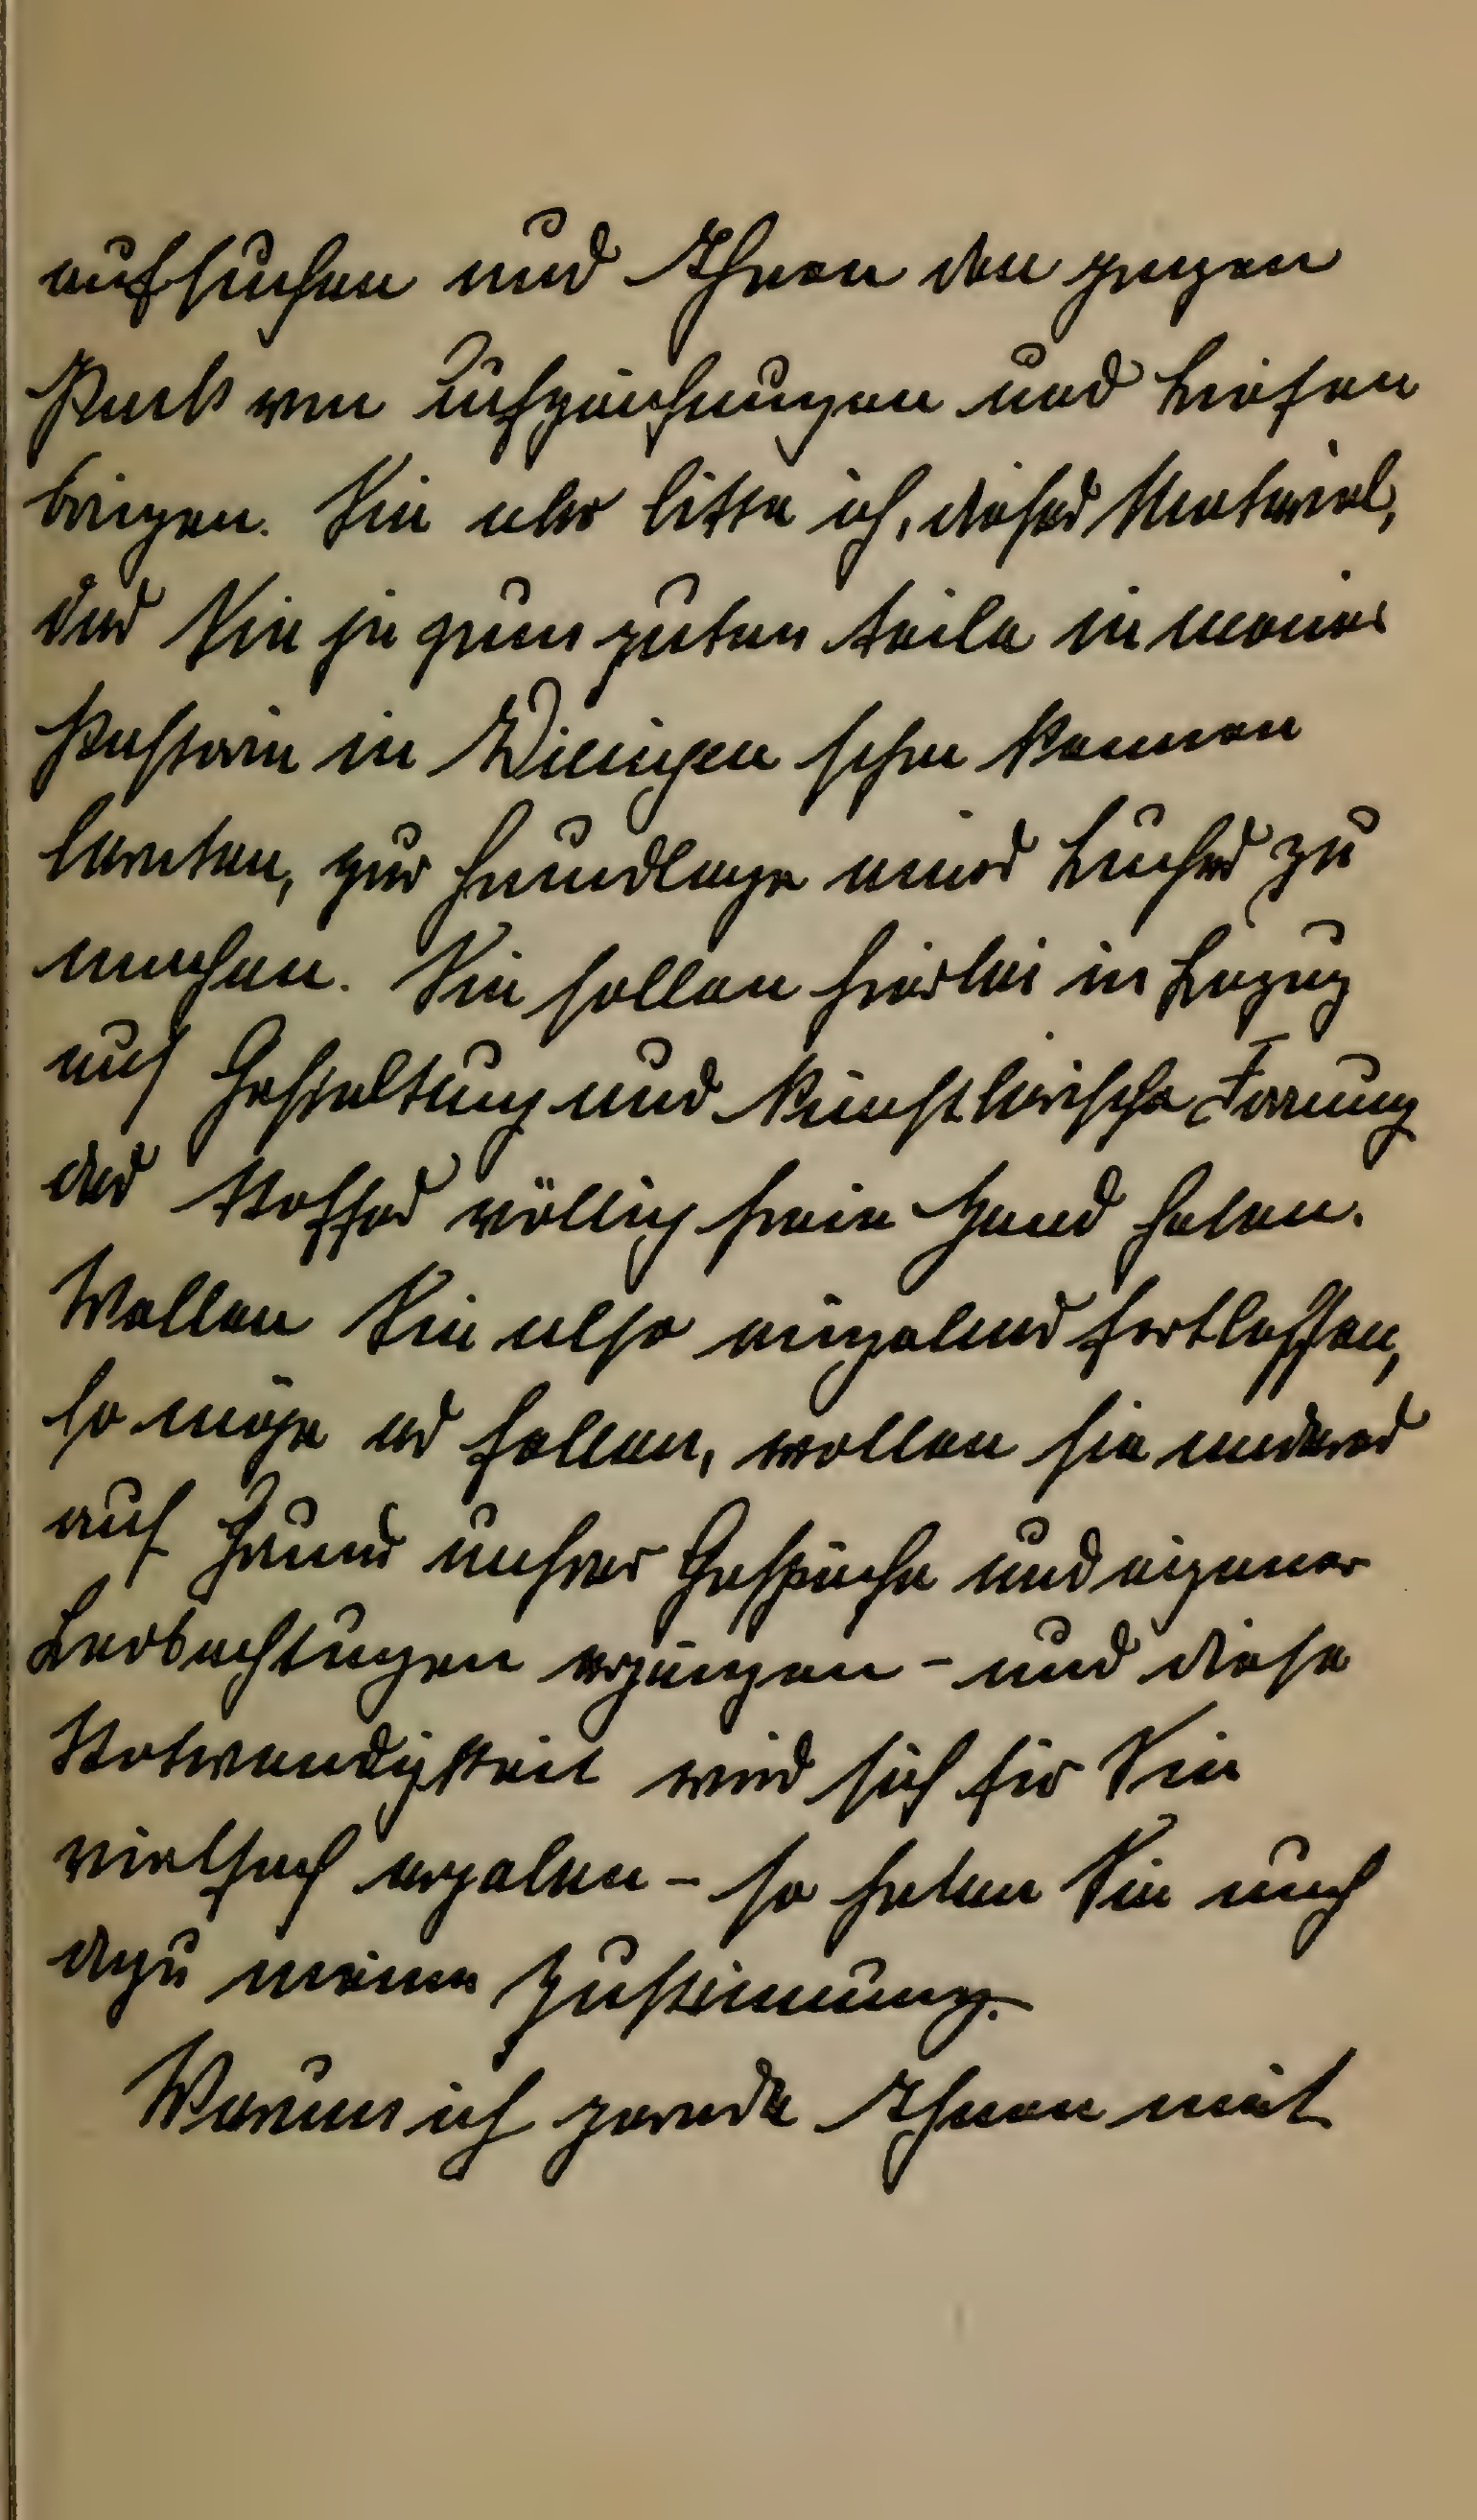 aufsuchen und Ihnen den ganzen
Pack von Aufzeichnungen und Briefen
bringen. Sie aber bitte ich, dieses Material,
das Sie ja zum guten teile in meiner
Pastorie in Wieringen schon kennen
lernten, zur Grundlage eines Buches zu
machen. Sie sollen hierbei in Bezug
auf Gestaltung und künstlerische Formung
des Stoffes völlig freie Hand haben.
Wollen Sie also irgend fortlassen,
so möge es fallen, wollen sie anderes
auf Grund unsrer Gespräche und eigener
Beobachtungen ergänzen - und diese
Notwendigkeit wird sich für Sie
vielfach ergeben - so haben Sie auch
dazu meine Zustimmung.
Warum ich gerade Ihnen mit